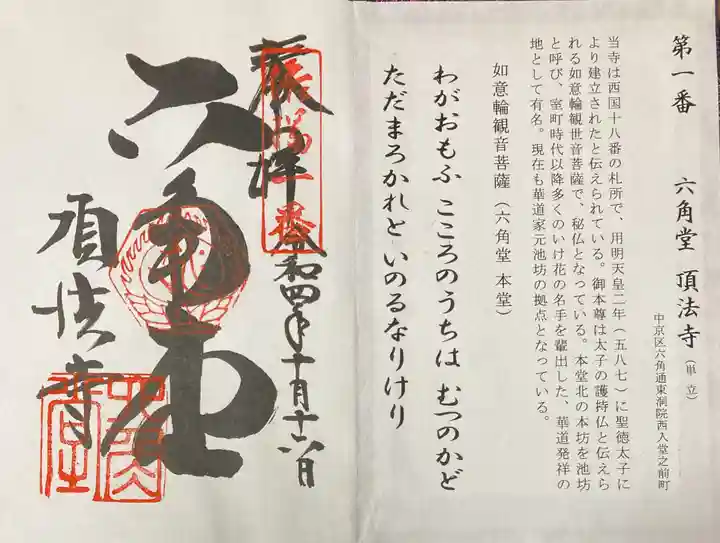 第一番 六角堂 頂法寺（単立）
中京区六角通東洞院西入堂之前町
当寺は西国十八番の札所で、用明天皇二年（五八七）に聖徳太子に
より建立されたと伝えられている。御本尊は太子の護持仏と伝えら
れる如意輪観世音菩薩で、秘仏となっている。本堂北の本坊を池坊
と呼び、室町時代以降多くのいけ花の名手を輩出した、華道発祥の
地として有名。現在も華道家元池坊の拠点となっている。
如意輪観音菩薩（六角堂 本堂）
わがおもふ こころのうちは むつのかど
ただまろかれと いのるなりけり
奉拝
令和四年十月十六日
六角堂
頂法寺